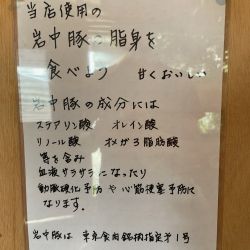 当店使用の
岩中豚の脂身を
食べよう 甘くおいしい
岩中豚の成分には
ステアリン酸 オレイン酸
リノール酸 オメガ3脂肪酸
等を含み
血液サラサラになったり
動脈硬化予防や心筋梗塞予防に
なります.
岩中豚は 東京食肉銘柄指定才1号